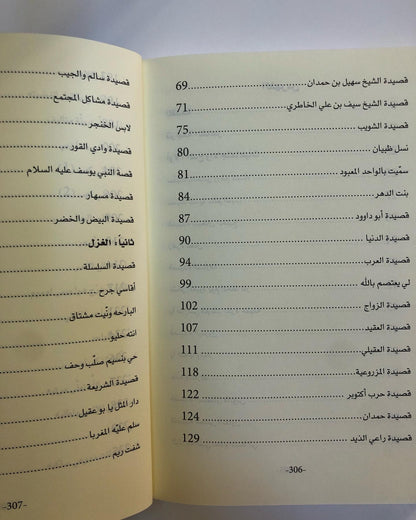 قصيدة الشيخ سهيل بن حمدان............69
قصيدة الشيخ سيف بن علي الخاطري............71
قصيدة الشويب............75
نسل ظبيان............80
سمّيت بالواحد المعبود............81
بنت الدهر............84
قصيدة أبو داوود............87
قصيدة الدنيا............90
قصيدة العرب............94
لي يعتصم بالله............99
قصيدة الزواج............102
قصيدة العقيد............107
قصيدة العقيلي............111
قصيدة المزروعية............118
قصيدة حرب أكتوبر............122
قصيدة حمدان............124
قصيدة راعي الذيد............129
-306-
قصيدة سالم والجيب............
قصيدة مشاكل المجتمع............
لابس الخنجر............
قصيدة وادي القور............
قصة النبي يوسف عليه السلام............
قصيدة مسهار............
قصيدة البيض والخضر............
ثانياً: الغزل............
قصيدة السلسلة............
أقاسي جرح............
البارحه ونّيت مشتاق............
انته حليو............
حي بنسيم صلّب وحف............
قصيدة الشريعة............
دار المثل يا بو عقيل............
سلم عليّه المغربا............
شفت ريم............
-307-